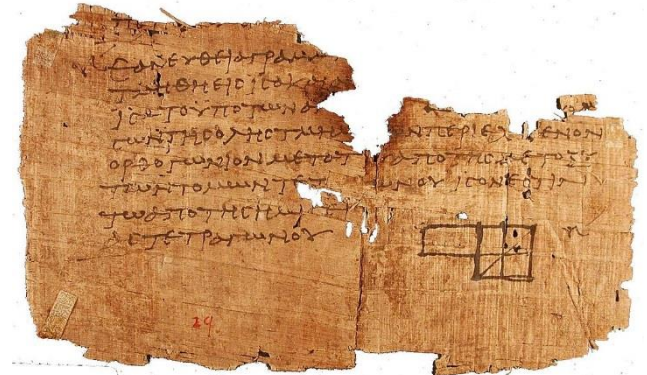 ΕΑΝ ΕΥΘΕΙΑ ΓΡΑΜΜ
ΤΜΗΘΗ ΕΙϹ ΙϹΑ Κ
ΙϹΑ ΤΟ ΥΠΟ ΤΩΝ Α
ϹΩΝ ΤΗϹ ΟΛΗϹ ΤΜΗ ΩΝ ΠΕΡΙΕΧΟΜΕΝΟΝ
ΟΡΘΟΓΩΝΙΟΝ ΜΕΤΑ Τ ΑΠΟ ΤΗϹ ΜΕΤΟΞΥ
ΤΩΝ ΤΟΜΩΝ ΤΕΤ ΩΝΟΥ ΙϹΟΝ ΕϹΤΙΝ
ΤΩ ΑΠΟ ΤΗϹ ΗΜΙϹ
ΤΕΤΡΑΓΩΝΟΥ
29